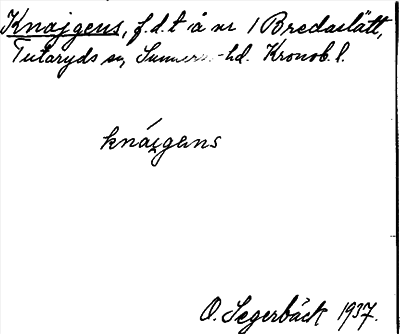 Knajgens, f.d.t å nr 1 Bredaslätt,
Tutaryds sn, Sunnerbo hd. Kronob. l.
knájgens
O. Segerbäck 1937.